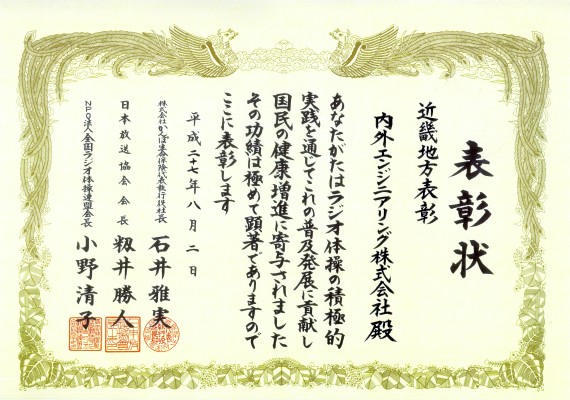 表彰状
近畿地方表彰
内外エンジニアリング株式会社殿
あなたがたはラジオ体操の積極的
実践を通じてこれの普及発展に貢献し
国民の健康増進に寄与されました
その功績は極めて顕著でありますので
ここに表彰します
平成二十七年八月二日
株式会社かんぽ生命保険代表執行役社長
石井雅実
日本放送協会会長
籾井勝人
NPO法人全国ラジオ体操連盟会長
小野清子